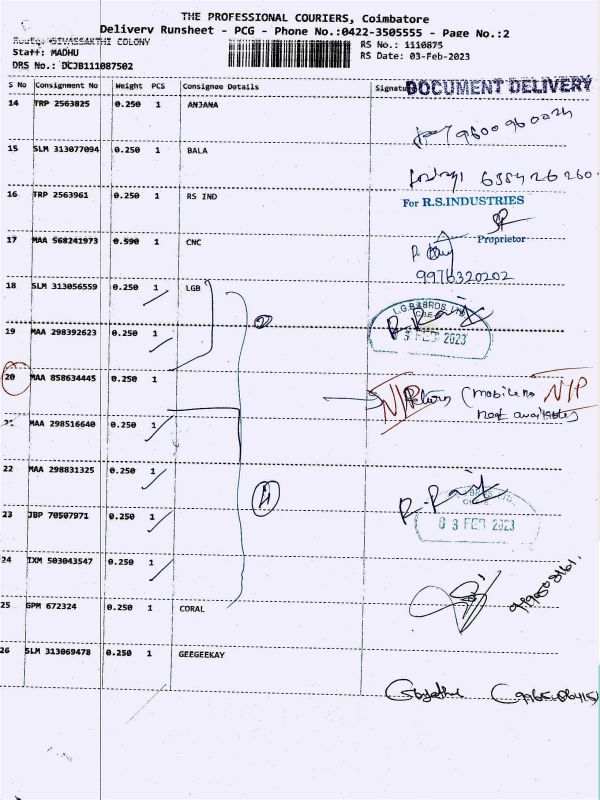 THE PROFESSIONAL COURIERS, Coimbatore
Delivery Runsheet - PCG - Phone No.:0422-3505555 - Page No.:2
Route: SIVASSAKTHI COLONY
RS No.: 1110875
Staff: MADHU
RS Date: 03-Feb-2023
DRS No.: DCJB111087502
DOCUMENT DELIVERY
S No Consignment No Weight PCS Consignee Details
14 TRP 2563825 0.250 1 ANJANA
9600960024
15 SLM 313077094 0.250 1 BALA
16 TRP 2563961 0.250 1 RS IND
For R.S.INDUSTRIES
Proprietor
17 MAA 568241973 0.590 1 CNC
9976320202
18 SLM 313056559 0.250 1 LGB
L.G.B&BROS. LTD
19 MAA 298392623 0.250 1
3 FEB 2023
20 MAA 858634445 0.250 1
N/P Return (mobile no N/P
not available)
21 MAA 298516640 0.250 1
22 MAA 298831325 0.250 1
4
23 JBP 70507971 0.250 1
03 FEB 2023
24 IXM 503043547 0.250 1
25 GPM 672324 0.250 1 CORAL
26 SLM 313069478 0.250 1 GEEGEEKAY